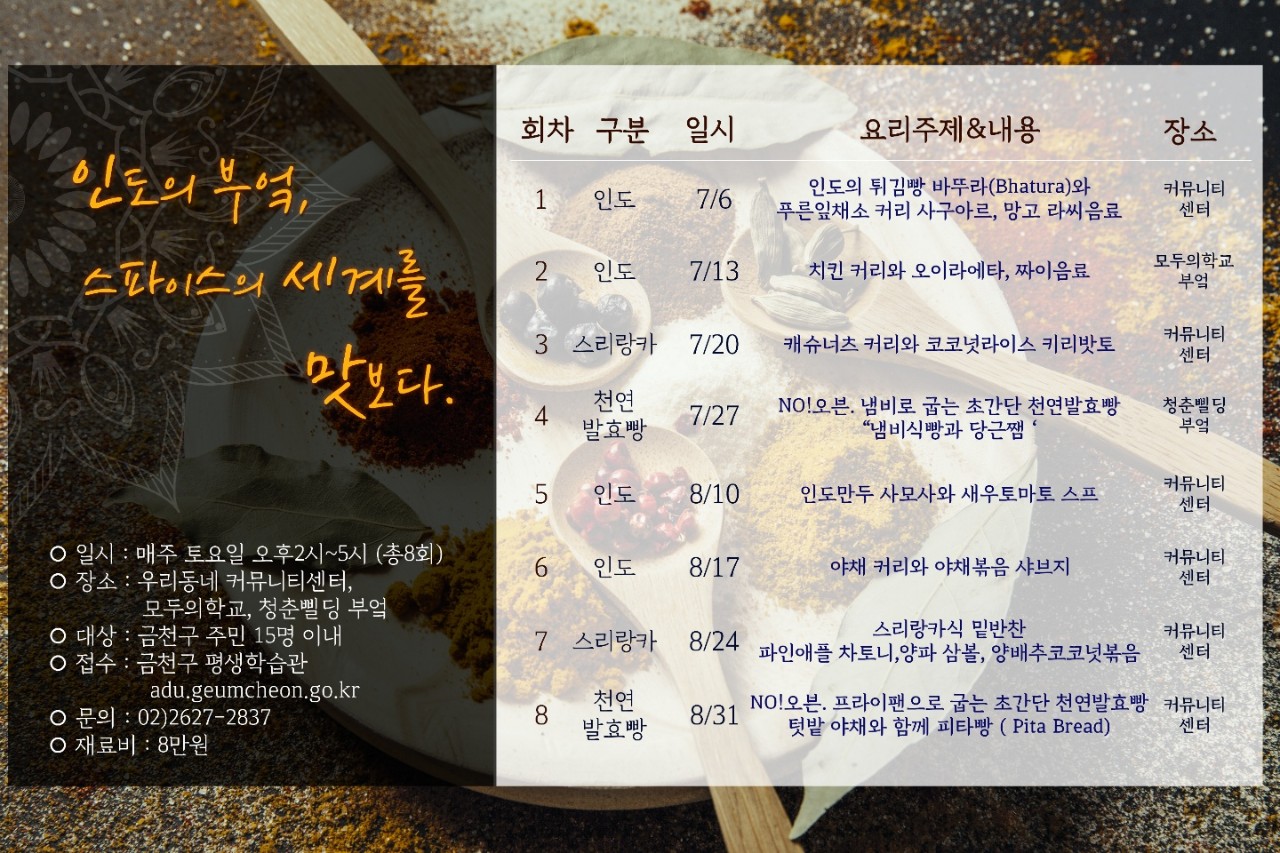 인도의 부엌,
스파이스의 세계를
맛보다.
○ 일시 : 매주 토요일 오후2시~5시 (총8회)
○ 장소 : 우리동네 커뮤니티센터,
모두의학교, 청춘삘딩 부엌
○ 대상 : 금천구 주민 15명 이내
○ 접수 : 금천구 평생학습관
adu.geumcheon.go.kr
○ 문의 : 02)2627-2837
○ 재료비 : 8만원
회차 구분 일시 요리주제&내용 장소
1 인도 7/6 인도의 튀김빵 바뚜라(Bhatura)와 커뮤니티
푸른잎채소 커리 사구아르, 망고 라씨음료 센터
2 인도 7/13 치킨 커리와 오이라에타, 짜이음료 모두의학교
부엌
3 스리랑카 7/20 캐슈너츠 커리와 코코넛라이스 키리밧토 커뮤니티
센터
4 천연 7/27 NO!오븐. 냄비로 굽는 초간단 천연발효빵 청춘삘딩
발효빵 “냄비식빵과 당근쨈 ‘ 부엌
5 인도 8/10 인도만두 사모사와 새우토마토 스프 커뮤니티
센터
6 인도 8/17 야채 커리와 야채볶음 샤브지 커뮤니티
센터
7 스리랑카 8/24 스리랑카식 밑반찬 커뮤니티
파인애플 차토니,양파 삼볼, 양배추코코넛볶음 센터
8 천연 8/31 NO!오븐. 프라이팬으로 굽는 초간단 천연발효빵 커뮤니티
발효빵 텃밭 야채와 함께 피타빵 ( Pita Bread) 센터